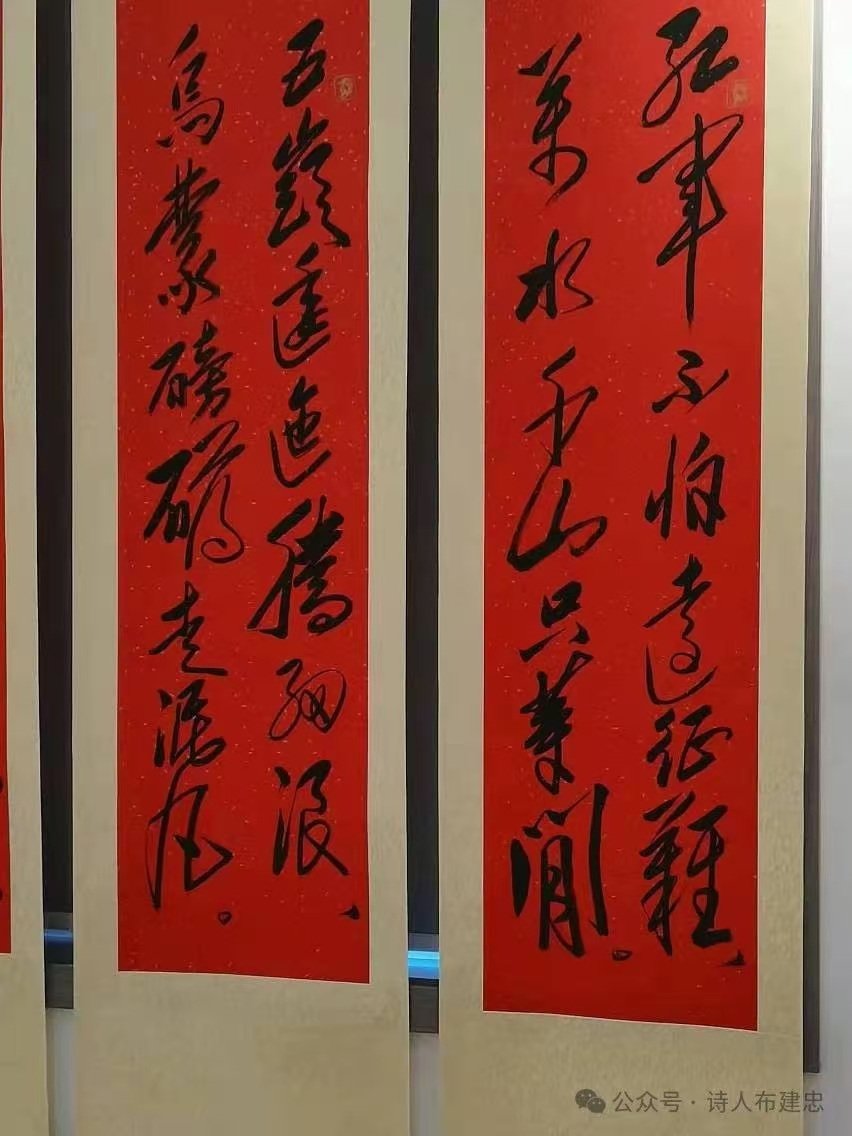 紅軍不怕遠征難、
萬水千山只等閒。
五嶺逶迤騰細浪、
烏蒙磅礴走泥丸。
公众号·诗人布建忠